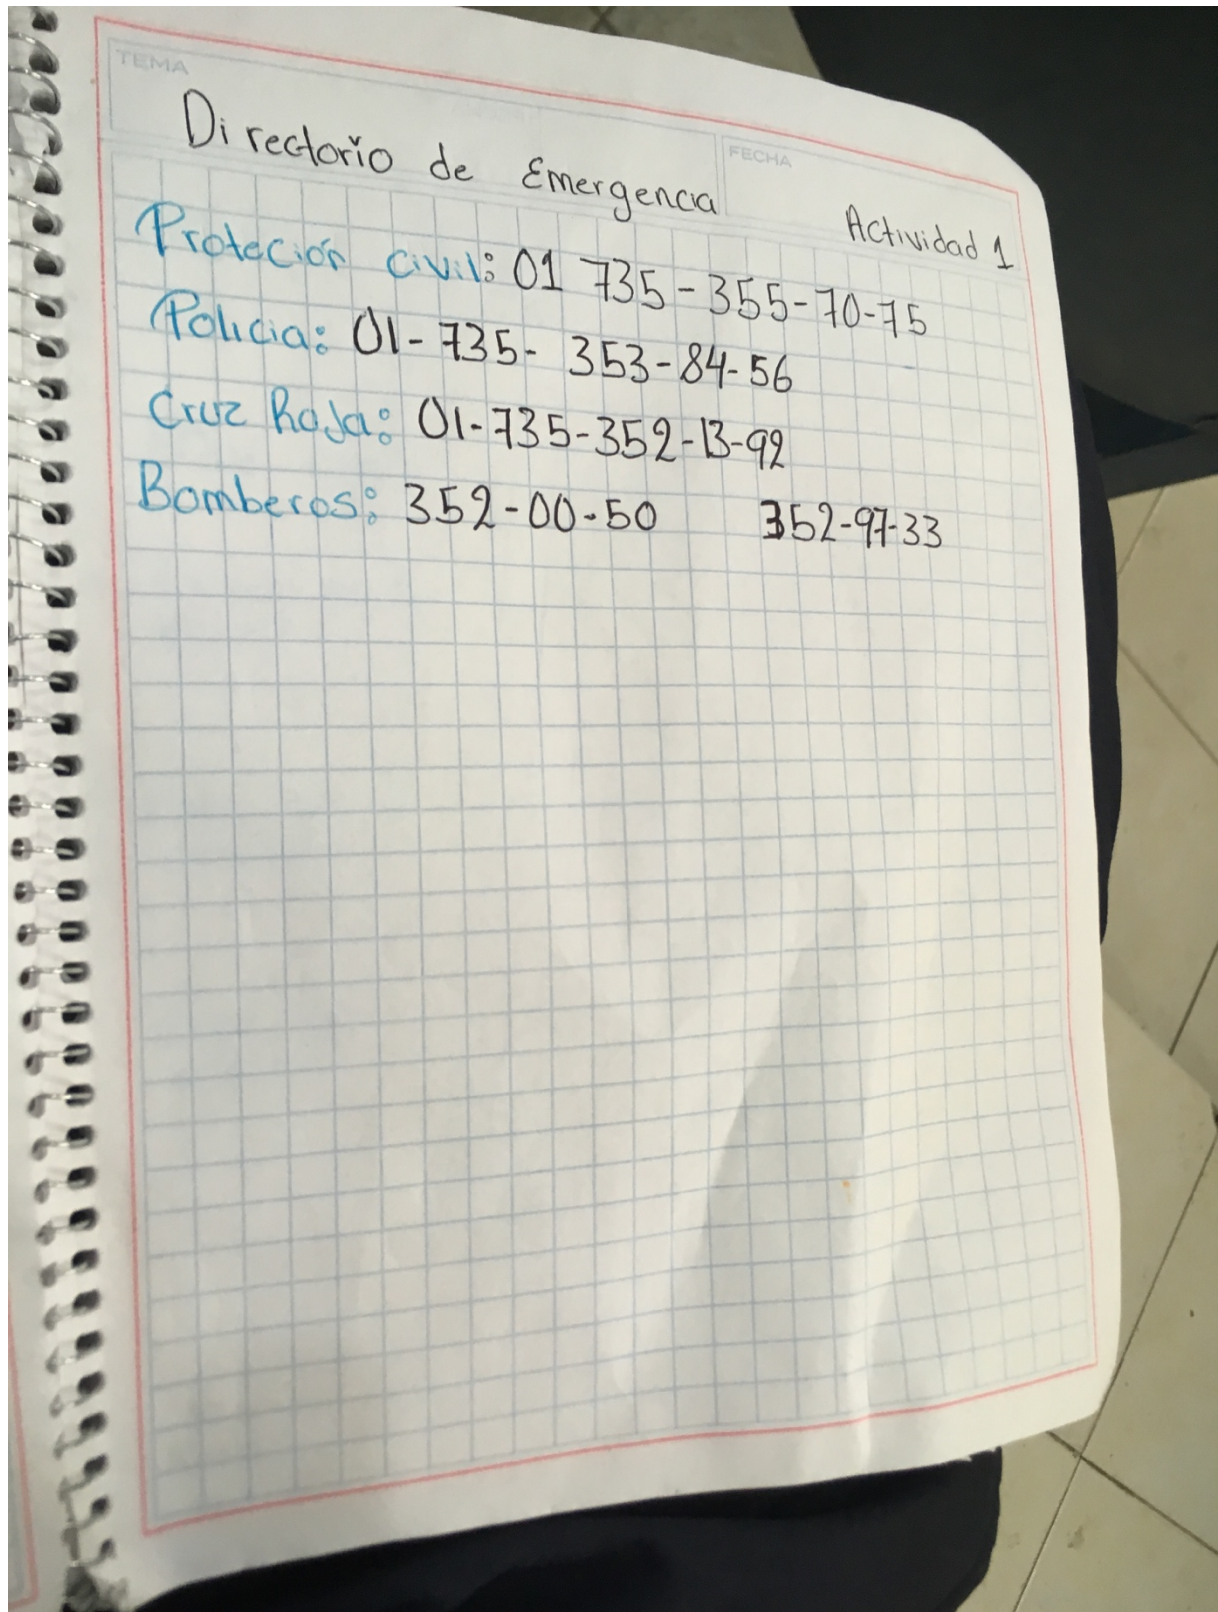 TEMA
Directorio de Emergencia
FECHA
Actividad 1
Proteción civil: 01 735-355-70-75
Policia: 01-735-353-84-56
Cruz Roja: 01-735-352-13-92
Bomberos: 352-00-50 352-97-33